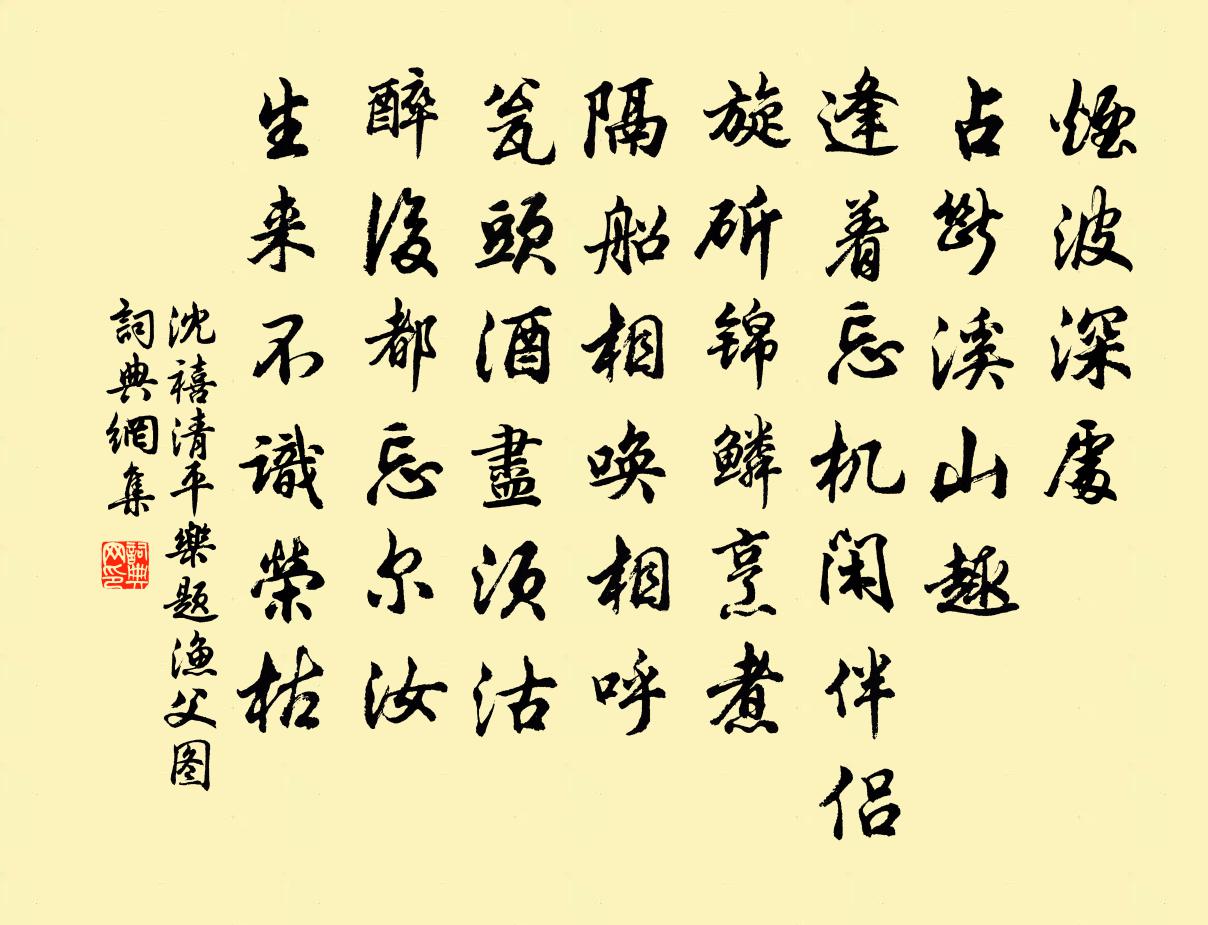 煙波深處
占斷溪山趣
逢着忘机閑伴侶
旋斫锦鱗烹煮
隔船相唤相呼
瓮頭酒盡須沽
醉後都忘尔汝
生来不識榮枯
沈禧清平樂题渔父图
詞典網集
詞典网印